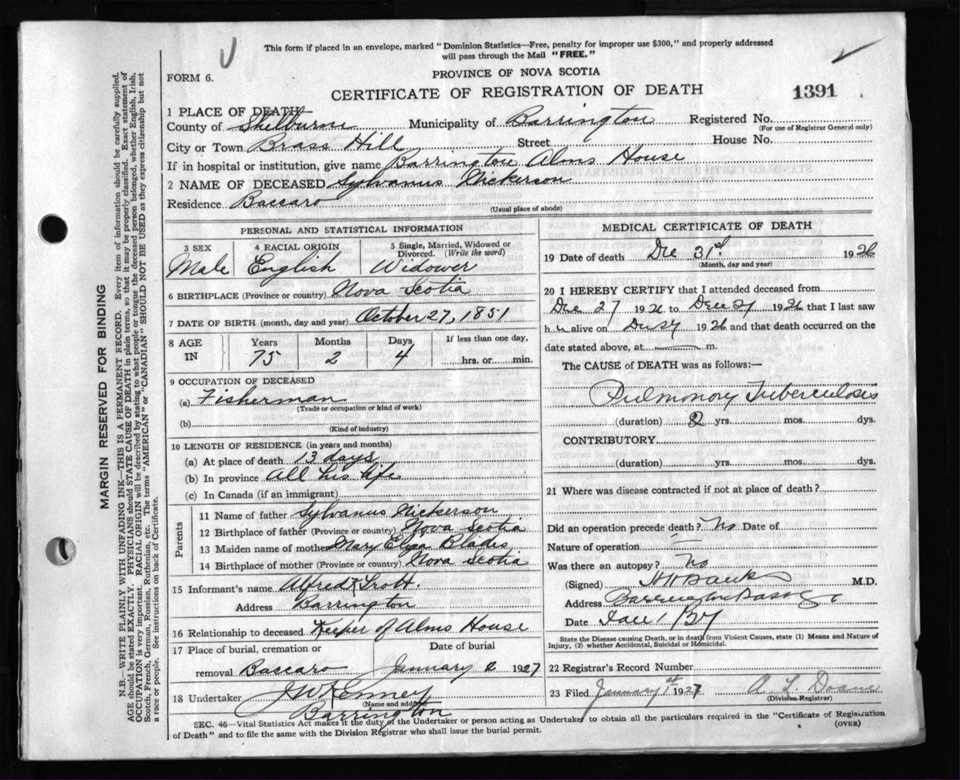 This form if placed in an envelope, marked "Dominion Statistics—Free, penalty for improper use $300," and properly addressed
will pass through the Mail "FREE."
FORM 6.
PROVINCE OF NOVA SCOTIA
CERTIFICATE OF REGISTRATION OF DEATH
1391
1 PLACE OF DEATH
County of Shelburne Municipality of Barrington Registered No.
(For use of Registrar General only)
City or Town Brass Hill Street House No.
If in hospital or institution, give name Barrington Alms House
2 NAME OF DECEASED Sylvanus Nickerson
Residence Baccaro
(Usual place of abode)
PERSONAL AND STATISTICAL INFORMATION
3 SEX 4 RACIAL ORIGIN 5 Single, Married, Widowed or Divorced. (Write the word)
Male English Widower
6 BIRTHPLACE (Province or country) Nova Scotia
7 DATE OF BIRTH (month, day and year) October 27, 1851
8 AGE IN Years Months Days If less than one day,
75 2 4 hrs. or min.
9 OCCUPATION OF DECEASED
(a) Fisherman
(Trade or occupation or kind of work)
(b)
(Kind of industry)
10 LENGTH OF RESIDENCE (in years and months)
(a) At place of death 13 days
(b) In province All his life
(c) In Canada (if an immigrant)
Parents
11 Name of father Sylvanus Nickerson
12 Birthplace of father (Province or country) Nova Scotia
13 Maiden name of mother Mary Eliza Blades
14 Birthplace of mother (Province or country) Nova Scotia
15 Informant's name Alfred Trott.
Address Barrington
16 Relationship to deceased Keeper of Alms House
17 Place of burial, cremation or Date of burial
removal Baccaro January 2 1927
18 Undertaker J W Kenney
(Name and address)
Barrington
MEDICAL CERTIFICATE OF DEATH
19 Date of death Dec 31st 1926
(Month, day and year)
20 I HEREBY CERTIFY that I attended deceased from
Dec 27 1926 to Dec 31 1926 that I last saw
h alive on 1926 and that death occurred on the
date stated above, at m.
The CAUSE of DEATH was as follows:—
Pulmonary Tuberculosis
(duration) 2 yrs. mos. dys.
CONTRIBUTORY
(duration) yrs. mos. dys.
21 Where was disease contracted if not at place of death?
Did an operation precede death? No Date of
Nature of operation
Was there an autopsy? No
(Signed) M.D.
Address Barrington Passage
Date 1/27
State the Disease causing Death, or in death from Violent Causes, state (1) Means and Nature of
Injury, (2) whether Accidental, Suicidal or Homicidal.
22 Registrar's Record Number
23 Filed January 1st 1927 R L Doane
(Division Registrar)
SEC. 46—Vital Statistics Act makes it the duty of the Undertaker or person acting as Undertaker to obtain all the particulars required in the "Certificate of Registration
of Death" and to file the same with the Division Registrar who shall issue the burial permit.
(OVER)
MARGIN RESERVED FOR BINDING
N.B.—WRITE PLAINLY WITH UNFADING INK—THIS IS A PERMANENT RECORD. Every item of information should be carefully supplied.
AGE should be stated EXACTLY. PHYSICIANS should STATE CAUSE OF DEATH in plain terms, so that it may be properly classified. Exact statement of
OCCUPATION is very important. RACIAL ORIGIN will be described by stating to what people or tongue the deceased person belonged, whether English, Irish,
Scotch, French, German, Russian, Ruthenian, etc. The terms "AMERICAN" or "CANADIAN" SHOULD NOT BE USED as they express citizenship but not
a race or people. See instructions on back of Certificate.